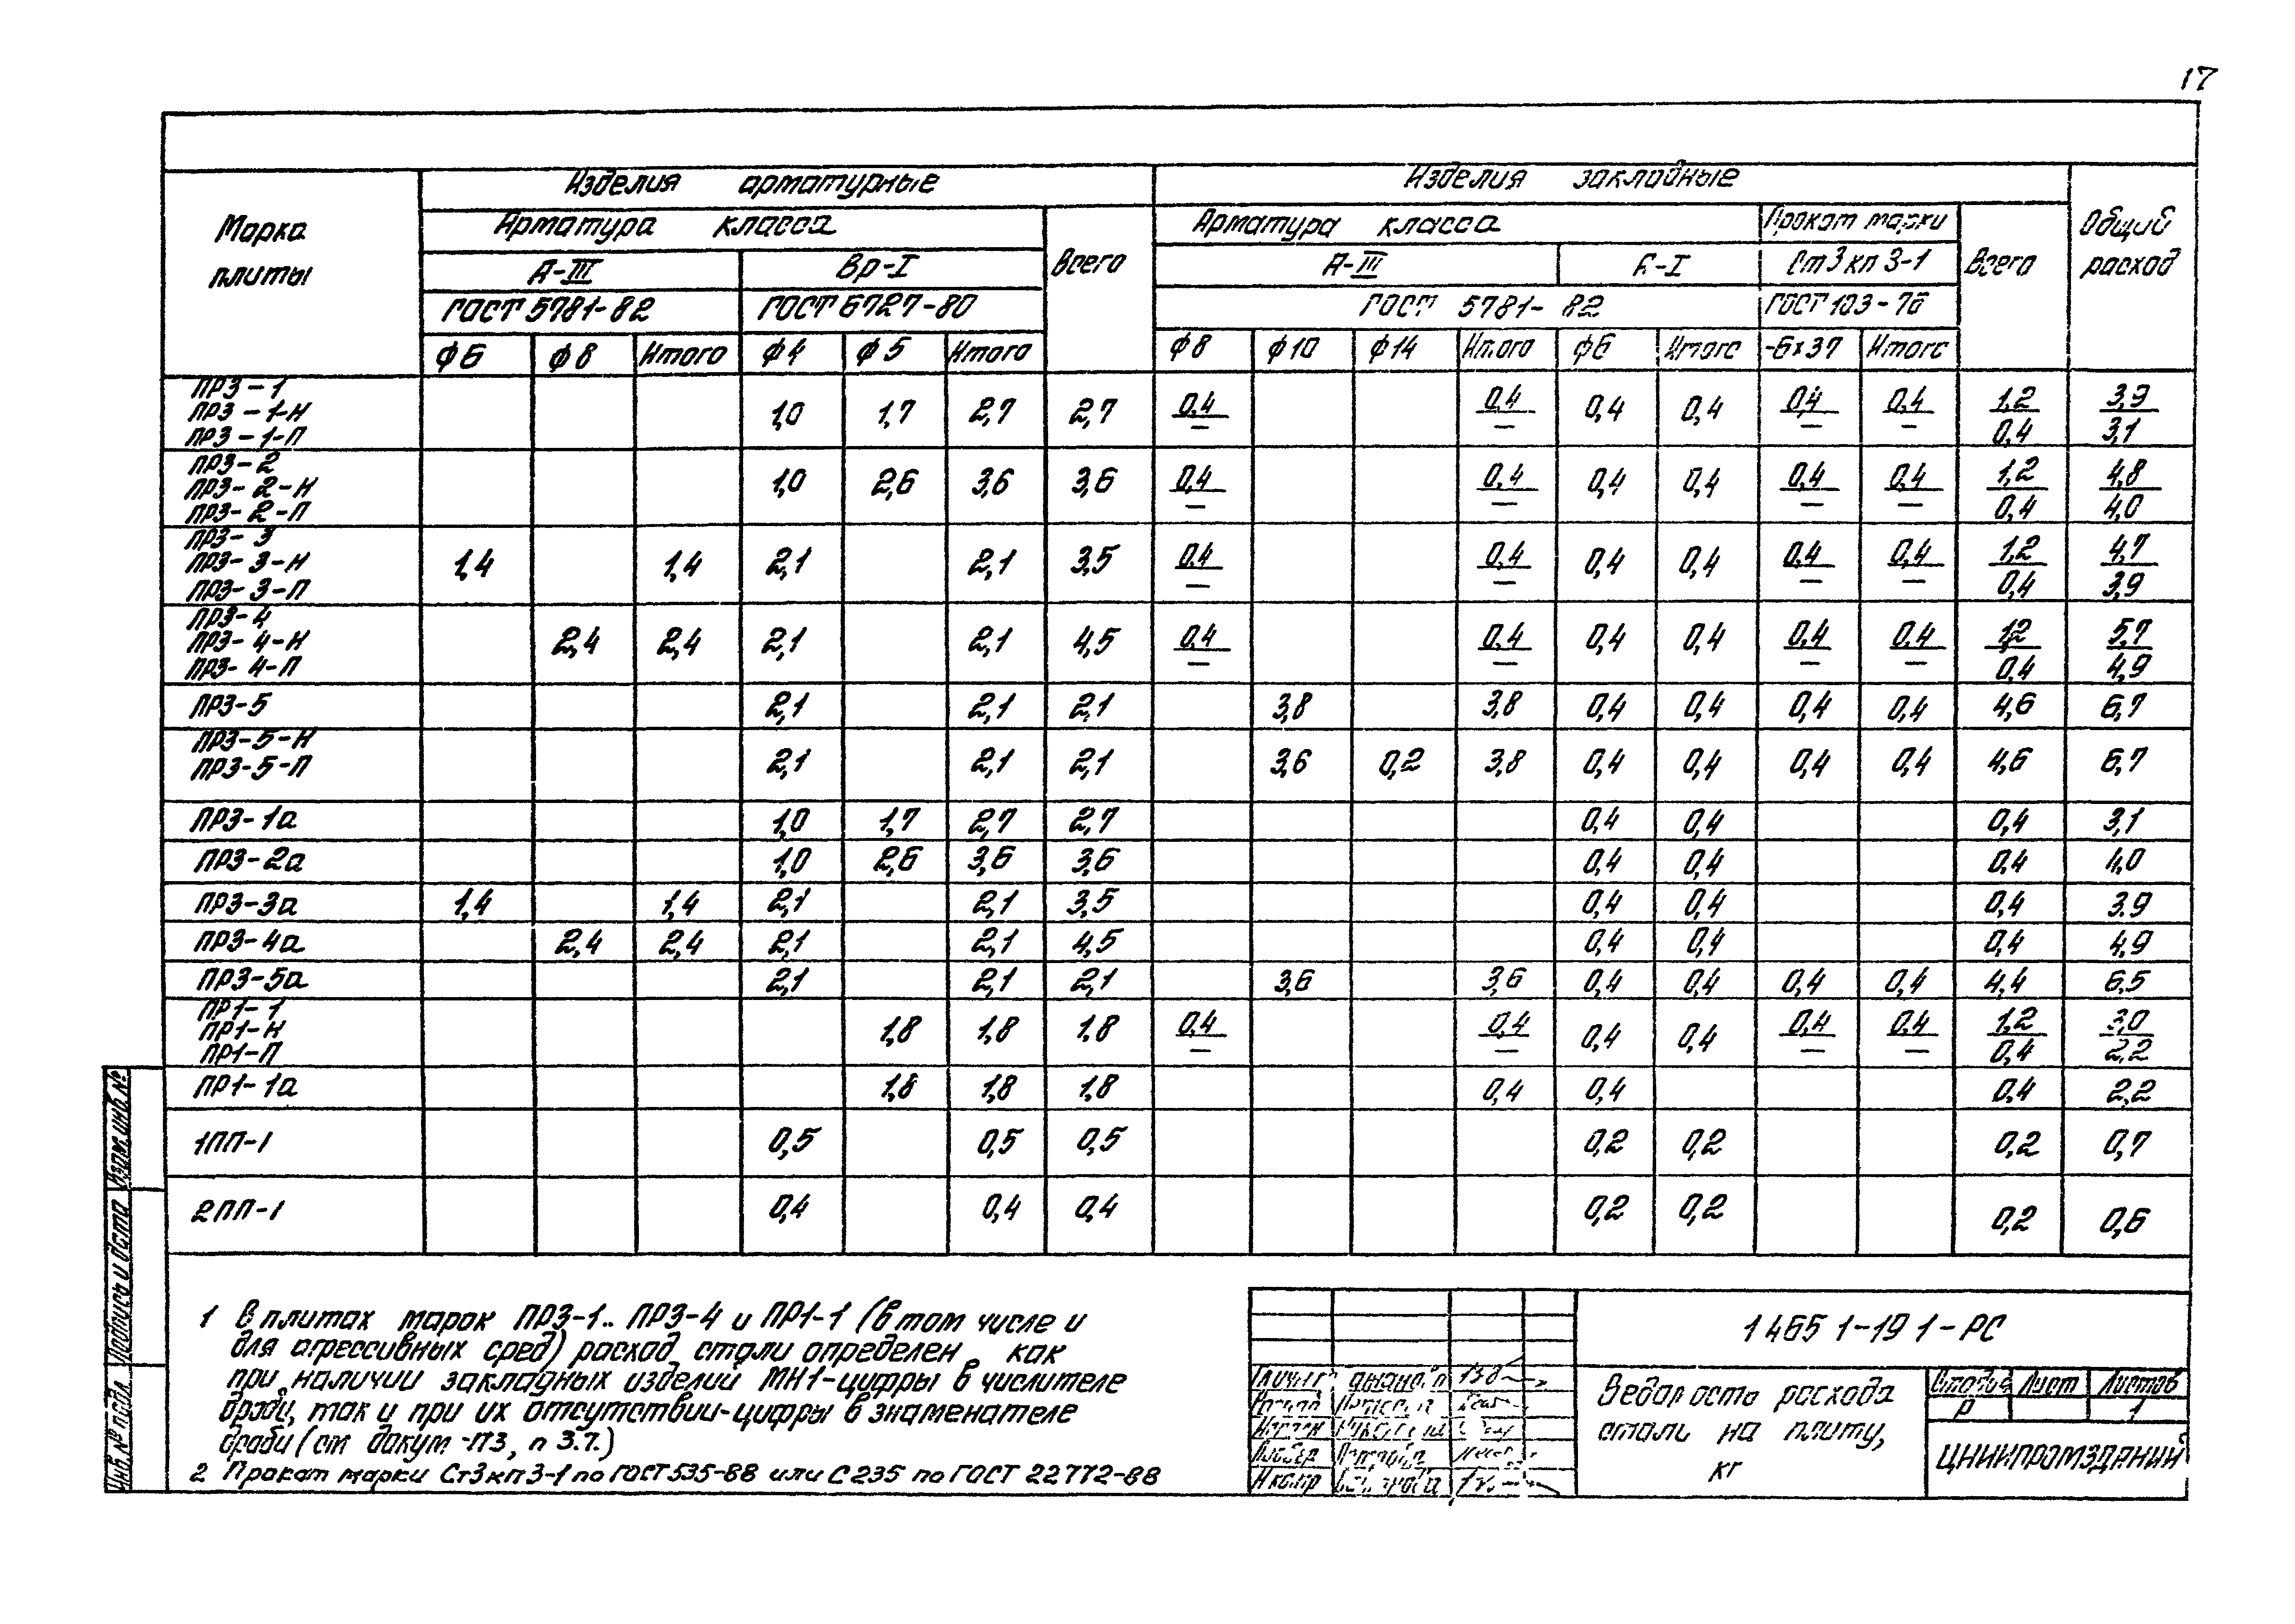 17
Марка плиты | Изделия арматурные | Изделия закладные | Общий расход
Арматура класса | Всего | Арматура класса | Прокат марки | Всего
А-III | Вр-I | А-III | А-I | Ст3кп3-1
ГОСТ 5781-82 | ГОСТ 6727-80 | ГОСТ 5781-82 | ГОСТ 103-76
ф6 | ф8 | Итого | ф4 | ф5 | Итого | ф8 | ф10 | ф14 | Итого | ф6 | Итого | -6х37 | Итого
ПР3-1
ПР3-1-Н | 1,0 | 1,7 | 2,7 | 2,7 | 0,4/— | 0,4/— | 0,4 | 0,4 | 0,4/— | 0,4/— | 1,2/0,4 | 3,9/3,1
ПР3-1-П
ПР3-2
ПР3-2-Н | 1,0 | 2,6 | 3,6 | 3,6 | 0,4/— | 0,4/— | 0,4 | 0,4 | 0,4/— | 0,4/— | 1,2/0,4 | 4,8/4,0
ПР3-2-П
ПР3-3
ПР3-3-Н | 1,4 | 1,4 | 2,1 | 2,1 | 3,5 | 0,4/— | 0,4/— | 0,4 | 0,4 | 0,4/— | 0,4/— | 1,2/0,4 | 4,7/3,9
ПР3-3-П
ПР3-4
ПР3-4-Н | 2,4 | 2,4 | 2,1 | 2,1 | 4,5 | 0,4/— | 0,4/— | 0,4 | 0,4 | 0,4/— | 0,4/— | 1,2/0,4 | 5,7/4,9
ПР3-4-П
ПР3-5 | 2,1 | 2,1 | 2,1 | 3,8 | 3,8 | 0,4 | 0,4 | 0,4 | 0,4 | 4,6 | 6,7
ПР3-5-Н
ПР3-5-П | 2,1 | 2,1 | 2,1 | 3,6 | 0,2 | 3,8 | 0,4 | 0,4 | 0,4 | 0,4 | 4,6 | 6,7
ПР3-1а | 1,0 | 1,7 | 2,7 | 2,7 | 0,4 | 0,4 | 0,4 | 3,1
ПР3-2а | 1,0 | 2,6 | 3,6 | 3,6 | 0,4 | 0,4 | 0,4 | 4,0
ПР3-3а | 1,4 | 1,4 | 2,1 | 2,1 | 3,5 | 0,4 | 0,4 | 0,4 | 3,9
ПР3-4а | 2,4 | 2,4 | 2,1 | 2,1 | 4,5 | 0,4 | 0,4 | 0,4 | 4,9
ПР3-5а | 2,1 | 2,1 | 2,1 | 3,6 | 3,6 | 0,4 | 0,4 | 0,4 | 0,4 | 4,4 | 6,5
ПР1-1
ПР1-Н | 1,8 | 1,8 | 1,8 | 0,4/— | 0,4/— | 0,4 | 0,4 | 0,4/— | 0,4/— | 1,2/0,4 | 3,0/2,2
ПР1-П
ПР1-1а | 1,8 | 1,8 | 1,8 | 0,4 | 0,4 | 0,4 | 2,2
1ПП-1 | 0,5 | 0,5 | 0,5 | 0,2 | 0,2 | 0,2 | 0,7
2ПП-1 | 0,4 | 0,4 | 0,4 | 0,2 | 0,2 | 0,2 | 0,6
1 В плитах марок ПР3-1.. ПР3-4 и ПР1-1 (в том числе и
для агрессивных сред) расход стали определен как
при наличии закладных изделий МН1-цифры в числителе
дроби, так и при их отсутствии-цифры в знаменателе
дроби (см докум -ПЗ, п 3.7.)
2 Прокат марки Ст3кп3-1 по ГОСТ 535-88 или С235 по ГОСТ 22772-88
1 465 1-19 1-РС
Ведомость расхода
стали на плиту,
кг
Стадия | Лист | Листов
Р | 1
ЦНИИПРОМЗДАНИЙ
Н контр
Взам. инв. №
Подпись и дата
Инв. № подл